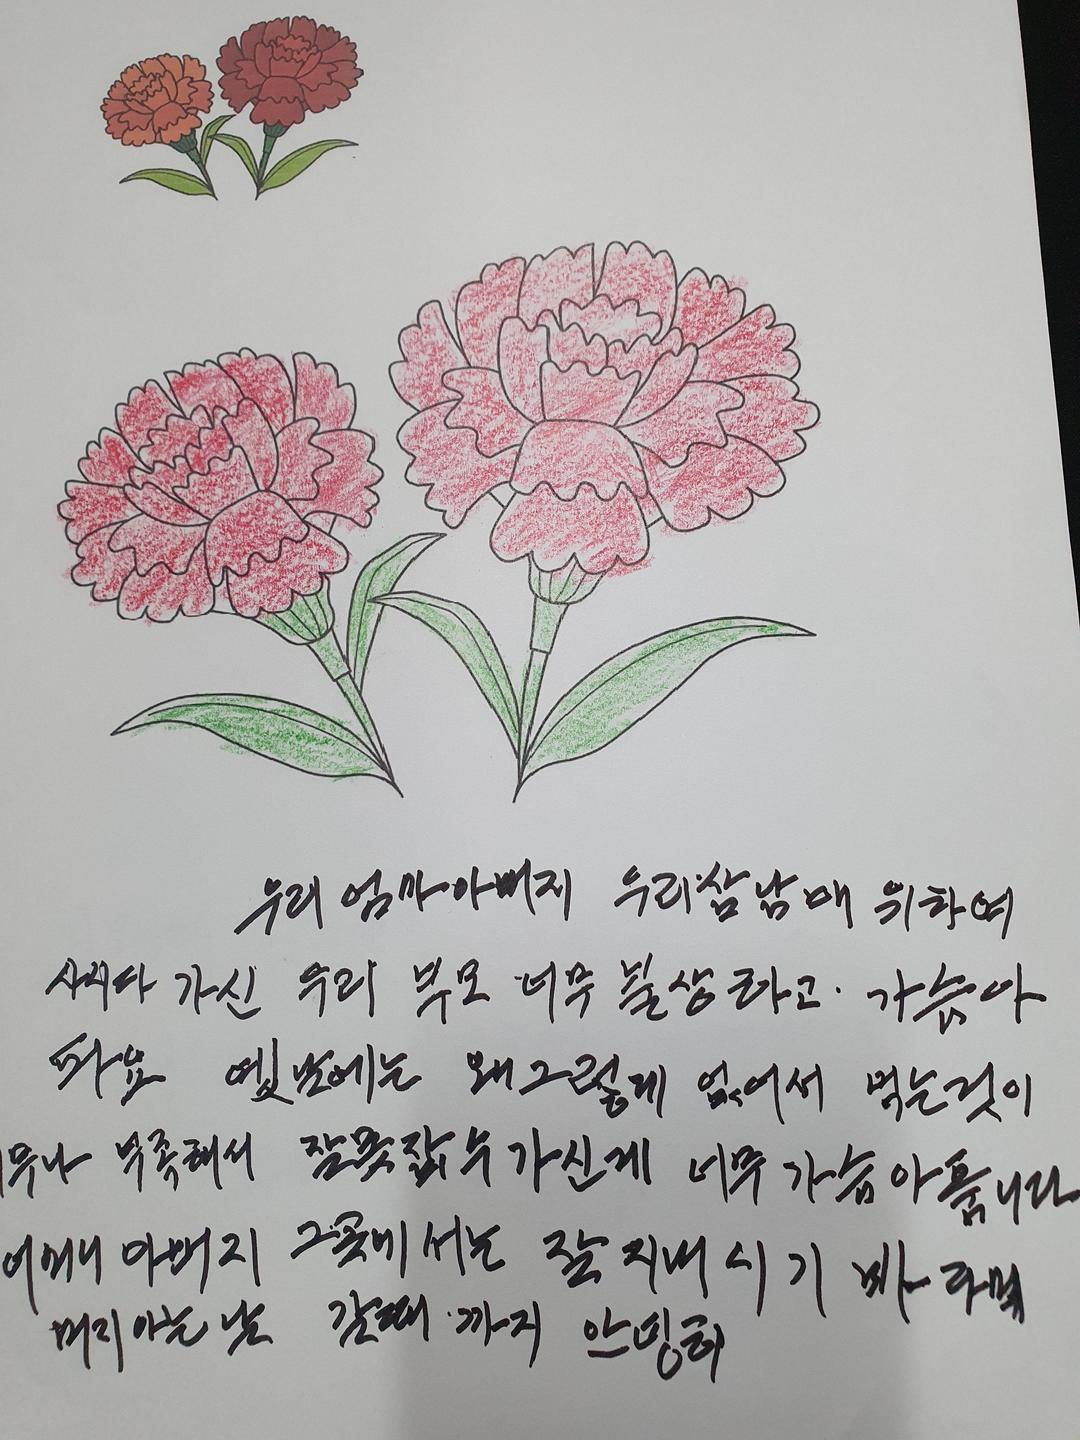 우리 엄마아뻐지 우리삼남매 위하여
사시다 가신 우리 부모 너무 불상라고. 가슴아
파요 옛날에는 왜그렇게 없어서 먹는것이
너무나 부족해서 잘못잡수 가신게 너무 가슴아픔니다
어머니 아버지 그곳에서는 잘 지내시기 바라며
머지아는날 갈때까지 안녕히